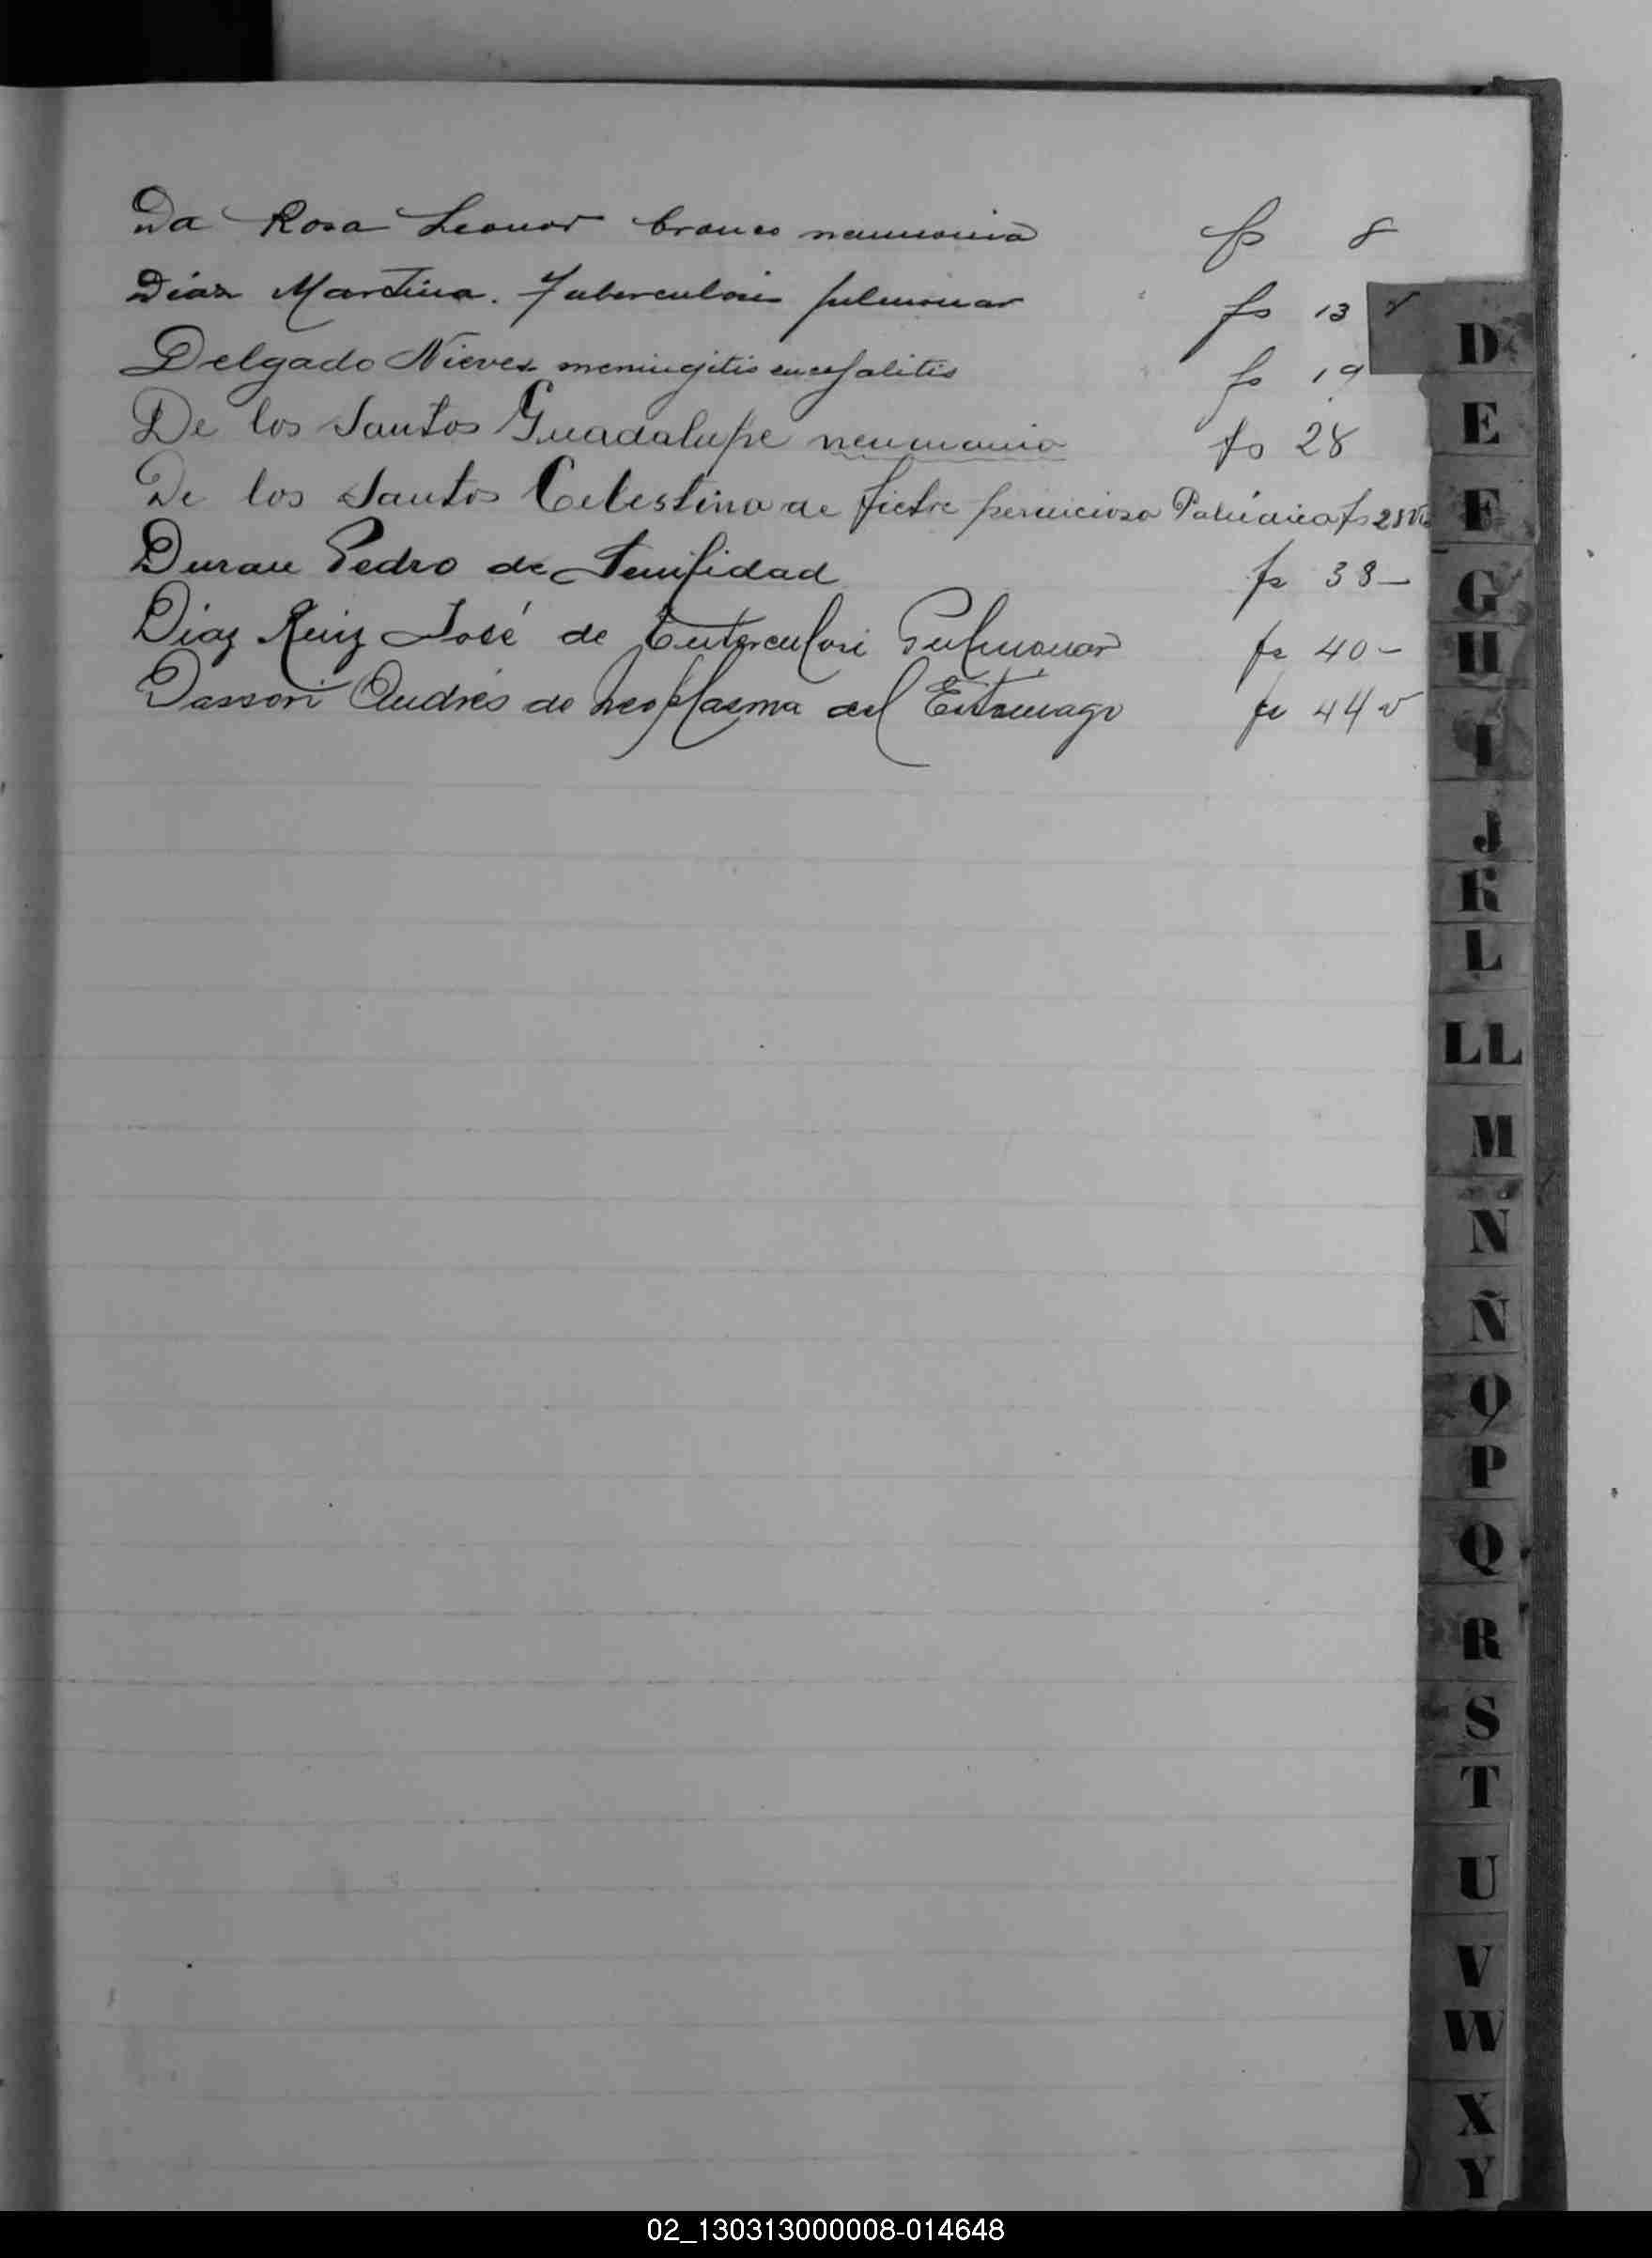 Da Rosa Leonor bronco neumonia fs 8
Diaz Martina. Tuberculosis pulmonar fs 13 v
Delgado Nieves meningitis encefalitis fs 19
De los Santos Guadalupe neumonia fs 28
De los Santos Celestino de fiebre perniciosa Palúdica fs 28 v
Duran Pedro de Senilidad fs 38 –
Diaz Ruiz José de Tuberculosi Pulmonar fs 40 –
Dassori Andrés de neoplasma del Estomago fs 44 v
D
E
F
G
H
I
J
K
L
LL
M
N
Ñ
O
P
Q
R
S
T
U
V
W
X
Y
02_130313000008-014648